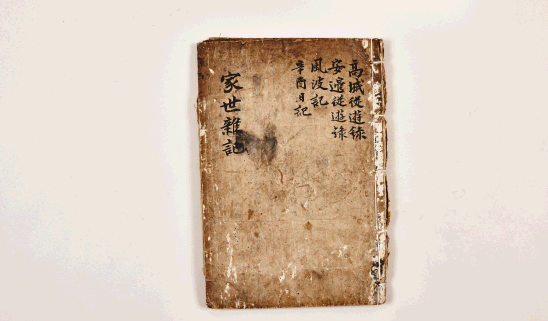 高城從遊錄
安邊從遊錄
風波記
辛酉日記
家世雜記